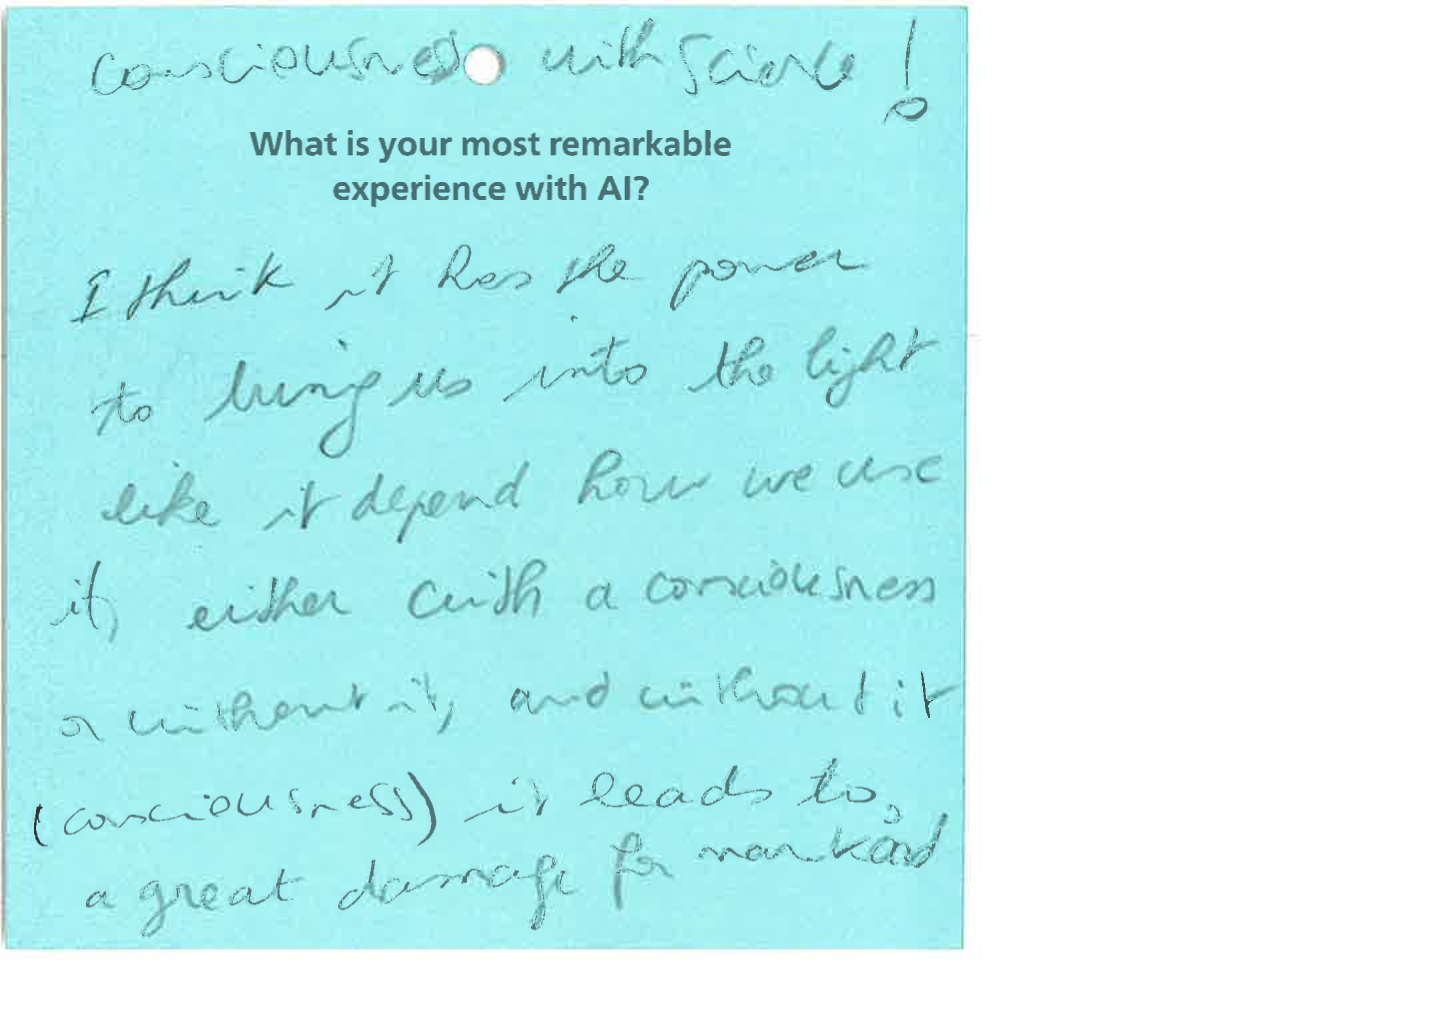 consciousness with Science!
What is your most remarkable
experience with AI?
I think it has the power
to bring us into the light
like it depend how we use
it, either with a consciousness
or without it, and without it
(consciousness) it leads to,
a great damage for mankind